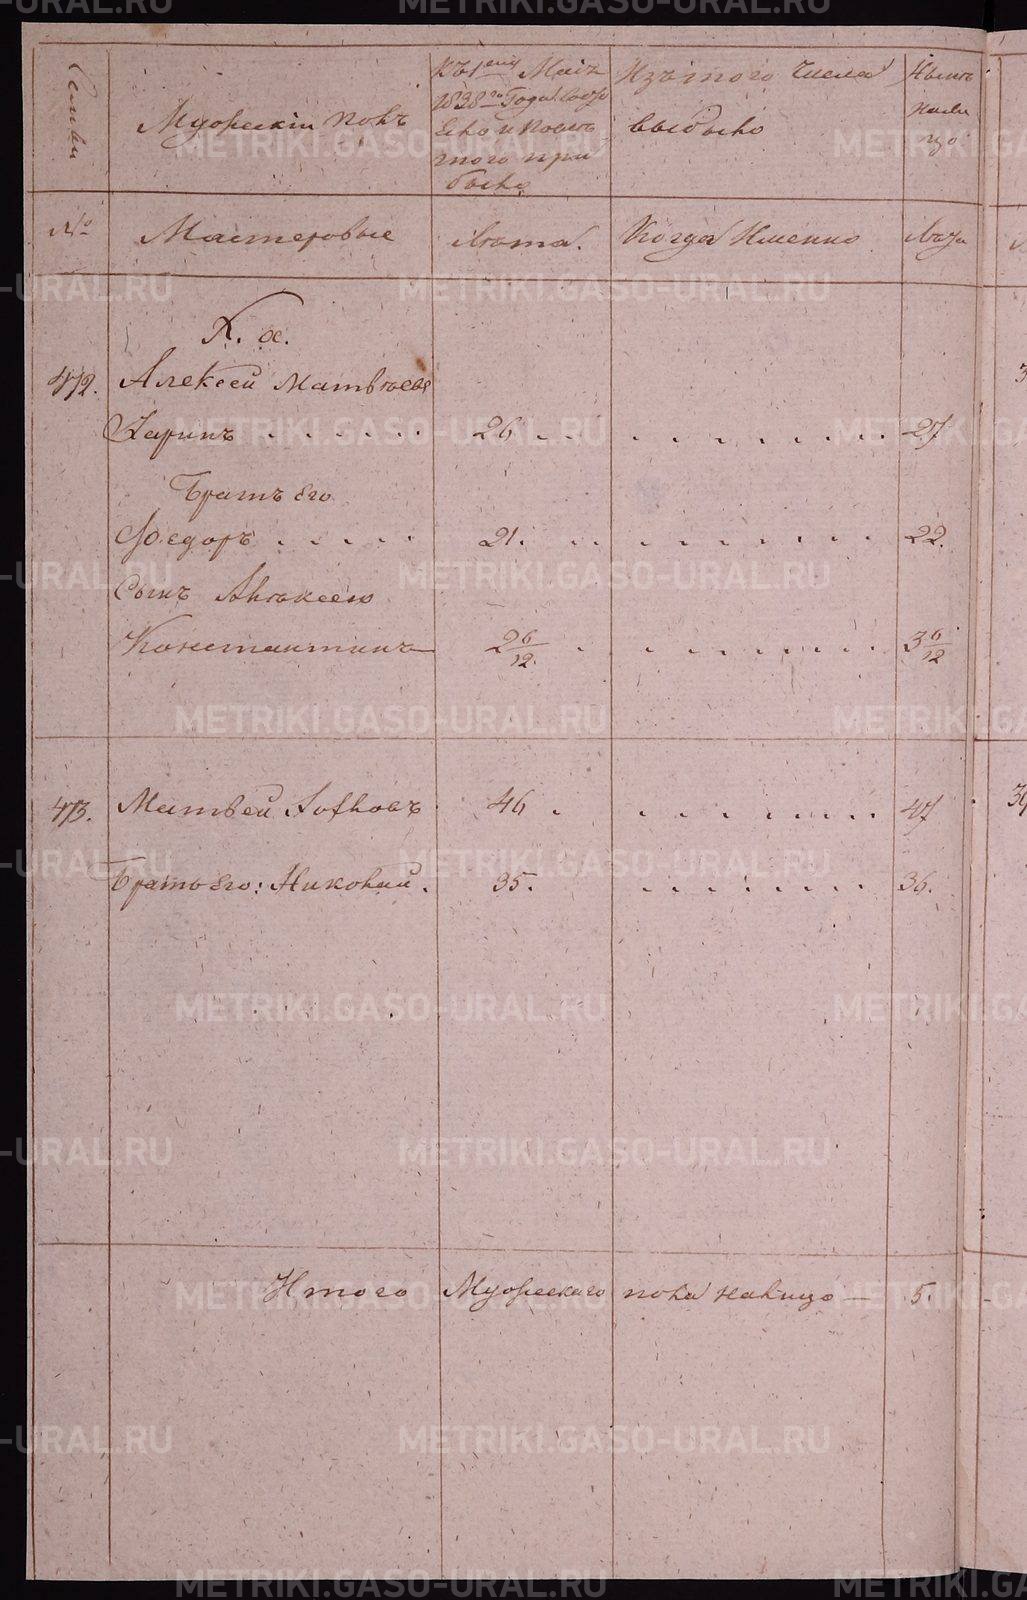 Семьи
Мужескiй полъ
Къ 1му Маiя
1838го Года состо
яло и после
того при
было
Изъ того числа
выбыло
Ныне
нали
цо
№
Мастеровые
Лета.
Когда Именно
Лета
472.
Алексей Матвеевъ
Заринъ . . . . . . 26 . . . . . . . . . . 27
Братъ его
Федоръ . . . . . 21. . . . . . . . . . . 22.
Сынъ Алексею
Константинъ 2 6/12 . . . . . . . . . 3 6/12
473. Матвей 46 . . . . . . . . . 47
Братъ его: Николай. 35. . . . . . . . 36.
Итого Мужескаго пола налицо — 5.
METRIKI.GASO-URAL.RU